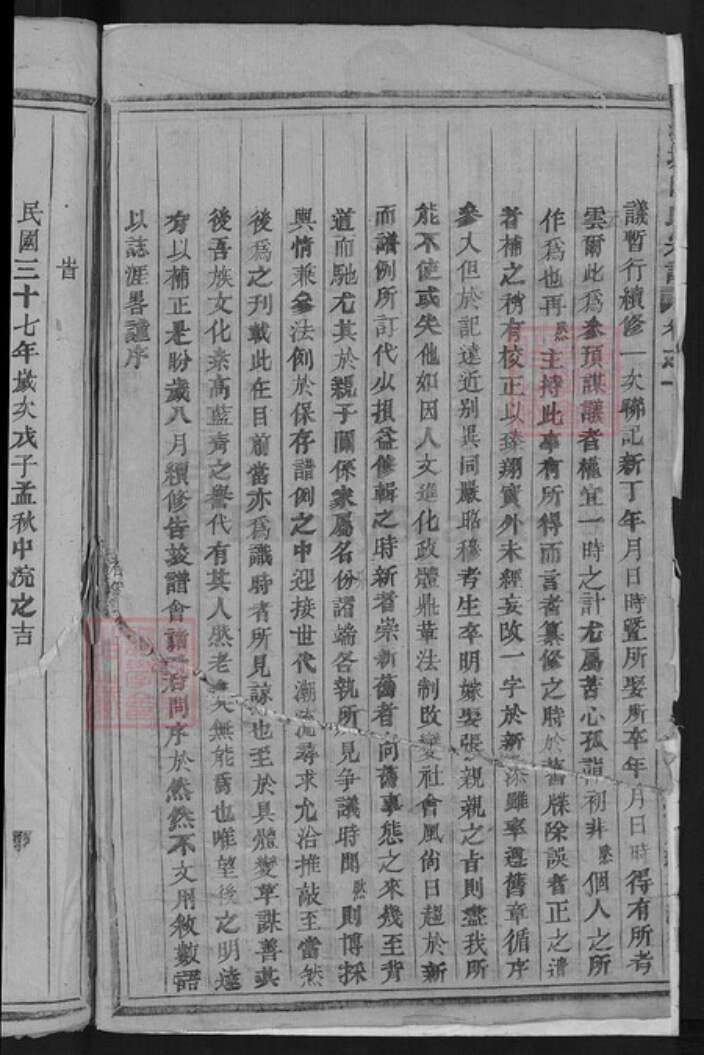 議暫行續修一次聯記新丁年月日時暨所娶所卒年月日時得有所考
雲爾此為參預謀議者權宜一時之計尤屬苦心孤詣初非然個人之所
作為也再然主持此事有所得而言者纂修之時於舊牒除誤者正之遺
者補之稍有校正以臻翔實外未經妄改一字於新添雖率遵舊章循序
參入但於記遠近別異同嚴昭穆考生卒明嫁娶張親親之旨則盡我所
能不使或失他如因人文進化政體鼎革法制改變社會風尚日趨於新
而譜例所訂代少損益修輯之時新者崇新舊者向舊事態之來幾至背
道而馳尤其於親子關係家屬名份諸端各執所見爭議時聞然則博採
輿情兼參法例於保存譜例之中迎接世代潮流尋求允洽推敲至當然
後為之刊載此在目前當亦為識時者所見諒也至於具體變革謀善其
後吾族文化素高藍青之譽代有其人然老矣無能為也唯望後之明達
有以補正是盼歲八月續修告竣譜會諸君問序於然然不文用敘數語
以誌涯畧謹序
旹
民國三十七年歲次戊子孟秋中浣之吉